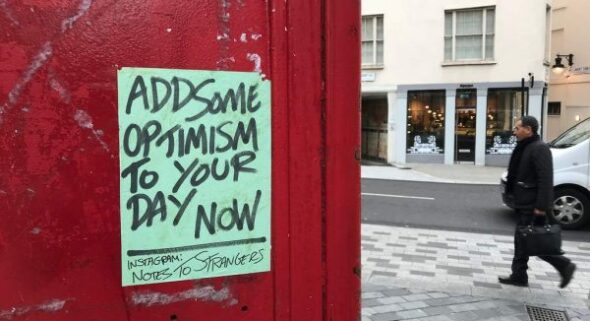 ADD SOME
OPTIMISM
TO YOUR
DAY NOW
INSTAGRAM:
NOTES TO STRANGERS